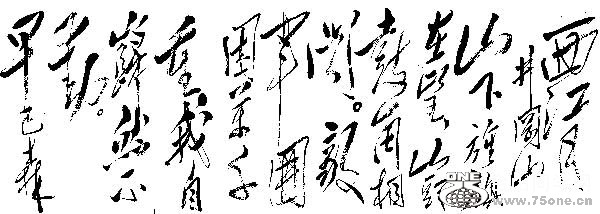 西江月
井岡山
山下旌旗
在望山頭
鼓角相
聞。敵
軍圍
困萬千
重我自
巋然不
動。
早已森
ONE
www.75one.cn